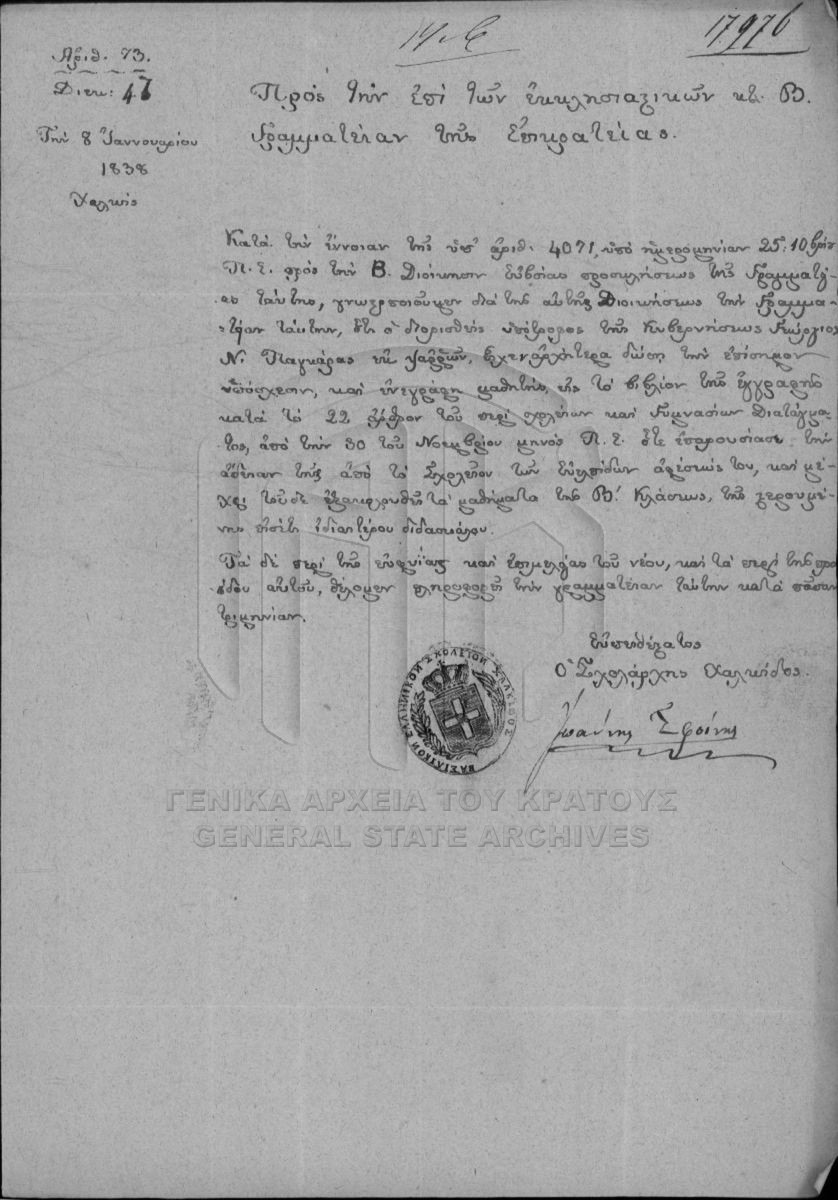 17976
Ἀριθ. 73.
Διεκ: 47
Τὴν 8 Ἰαννουαρίου
1838
Χαλκὶς
Πρὸς τὴν ἐπὶ τῶν ἐκκλησιαστικῶν κτ. Β.
Γραμματείαν τῆς Ἐπικρατείας.
Κατὰ τὴν ἔννοιαν τῆς ὑπ' ἀριθ. 4071, ὑπὸ ἡμερομηνίαν 25 10βρίου
Π. Ε. πρὸς τὴν Β. Διοίκησιν Εὐβοίας προσκλήσεως τῆς Γραμματεί-
ας ταύτης, γνωστοποιοῦμεν διὰ τῆς αὐτῆς Διοικήσεως τὴν Γραμμα-
τείαν ταύτην, ὅτι ὁ διορισθεὶς ὑπότροφος τῆς Κυβερνήσεως Γεώργιος
Ν. Παγκάρας ἐκ Ψαρῶν, δώσῃ τὴν ἐπίσημον
ὑπόσχεσιν, καὶ ἐνεγράφη μαθητὴς εἰς τὸ βιβλίον τῆς ἐγγραφῆς
κατὰ τὸ 22 ἄρθρον τοῦ περὶ σχολείων καὶ Γυμνασίων Διατάγμα-
τος, ἀπὸ τὴν 30 τοῦ Νοεμβρίου μηνὸς Π. Ε. ὅτε ἐπαρουσίασε τὴν
ἄδειαν τῆς ἀπὸ τὸ Σχολεῖον τῶν Εὐελπίδων ἀφέσεώς του, καὶ μέ-
χρι τοῦδε ἐξακολουθεῖ τὰ μαθήματα τῆς Β' Κλάσεως, τῆς στερουμέ-
νης εἰσέτι ἰδιαιτέρου διδασκάλου.
Τὰ δὲ περὶ τῆς εὐφυΐας καὶ ἐπιμελείας τοῦ νέου, καὶ τὰ περὶ τῆς προ-
όδου αὐτοῦ, θέλομεν πληροφορεῖ τὴν γραμματείαν ταύτην κατὰ πᾶσαν
τριμηνίαν.
Εὐπειθέστατος
Ὁ Σχολάρχης Χαλκίδος.
Ἰωάννης
ΒΑΣΙΛΙΚΟΝ ΕΛΛΗΝΙΚΟΝ ΣΧΟΛΕΙΟΝ ΧΑΛΚΙΔΟΣ
ΓΕΝΙΚΑ ΑΡΧΕΙΑ ΤΟΥ ΚΡΑΤΟΥΣ
GENERAL STATE ARCHIVES